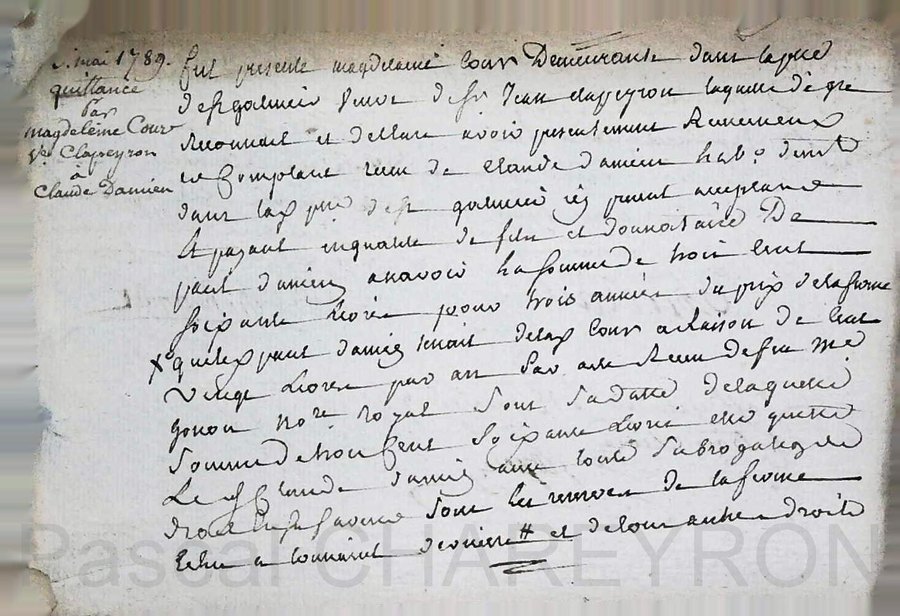 5. mai 1789.
quittance
par
magdeleine Cour
Ve. Clapeyron
à
Claude Damien
fut presente magdeleine Cour Demeurante dans la psse
de st galmier veuve de sr Jean clapeyron laquelle de gre
reconnait et declare avoir presentement
ce comptant recu de claude damien habt.
dans lad. psse de st galmier icy present acceptant
et payant en qualité de fils et donnataire De
paul damien a savoir la somme de trois cent
soixante livres pour trois années du prix de la ferme
X que led. paul damien tenait de lad. Cour a Raison de Cent
vingt livres par an par acte Recu de feu me
gonon nore. royal sous sa datte de laquelle
somme de trois cent soixante livres elle quitte
Le sr Claude damien avec toute subrogation de
droit en sa faveur sous les reserves de la ferme
et de tous autres droits
Pascal CHAREYRON